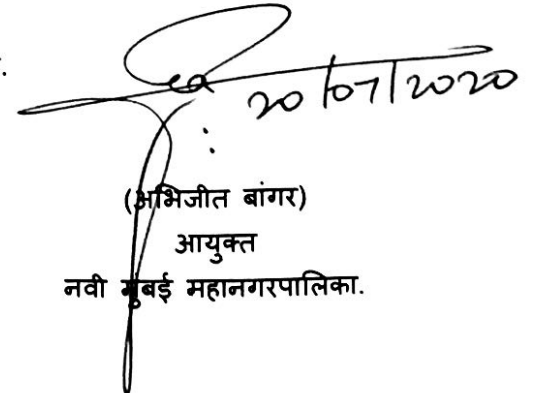 20/07/2020
(अभिजीत बांगर)
आयुक्त
नवी मुंबई महानगरपालिका.